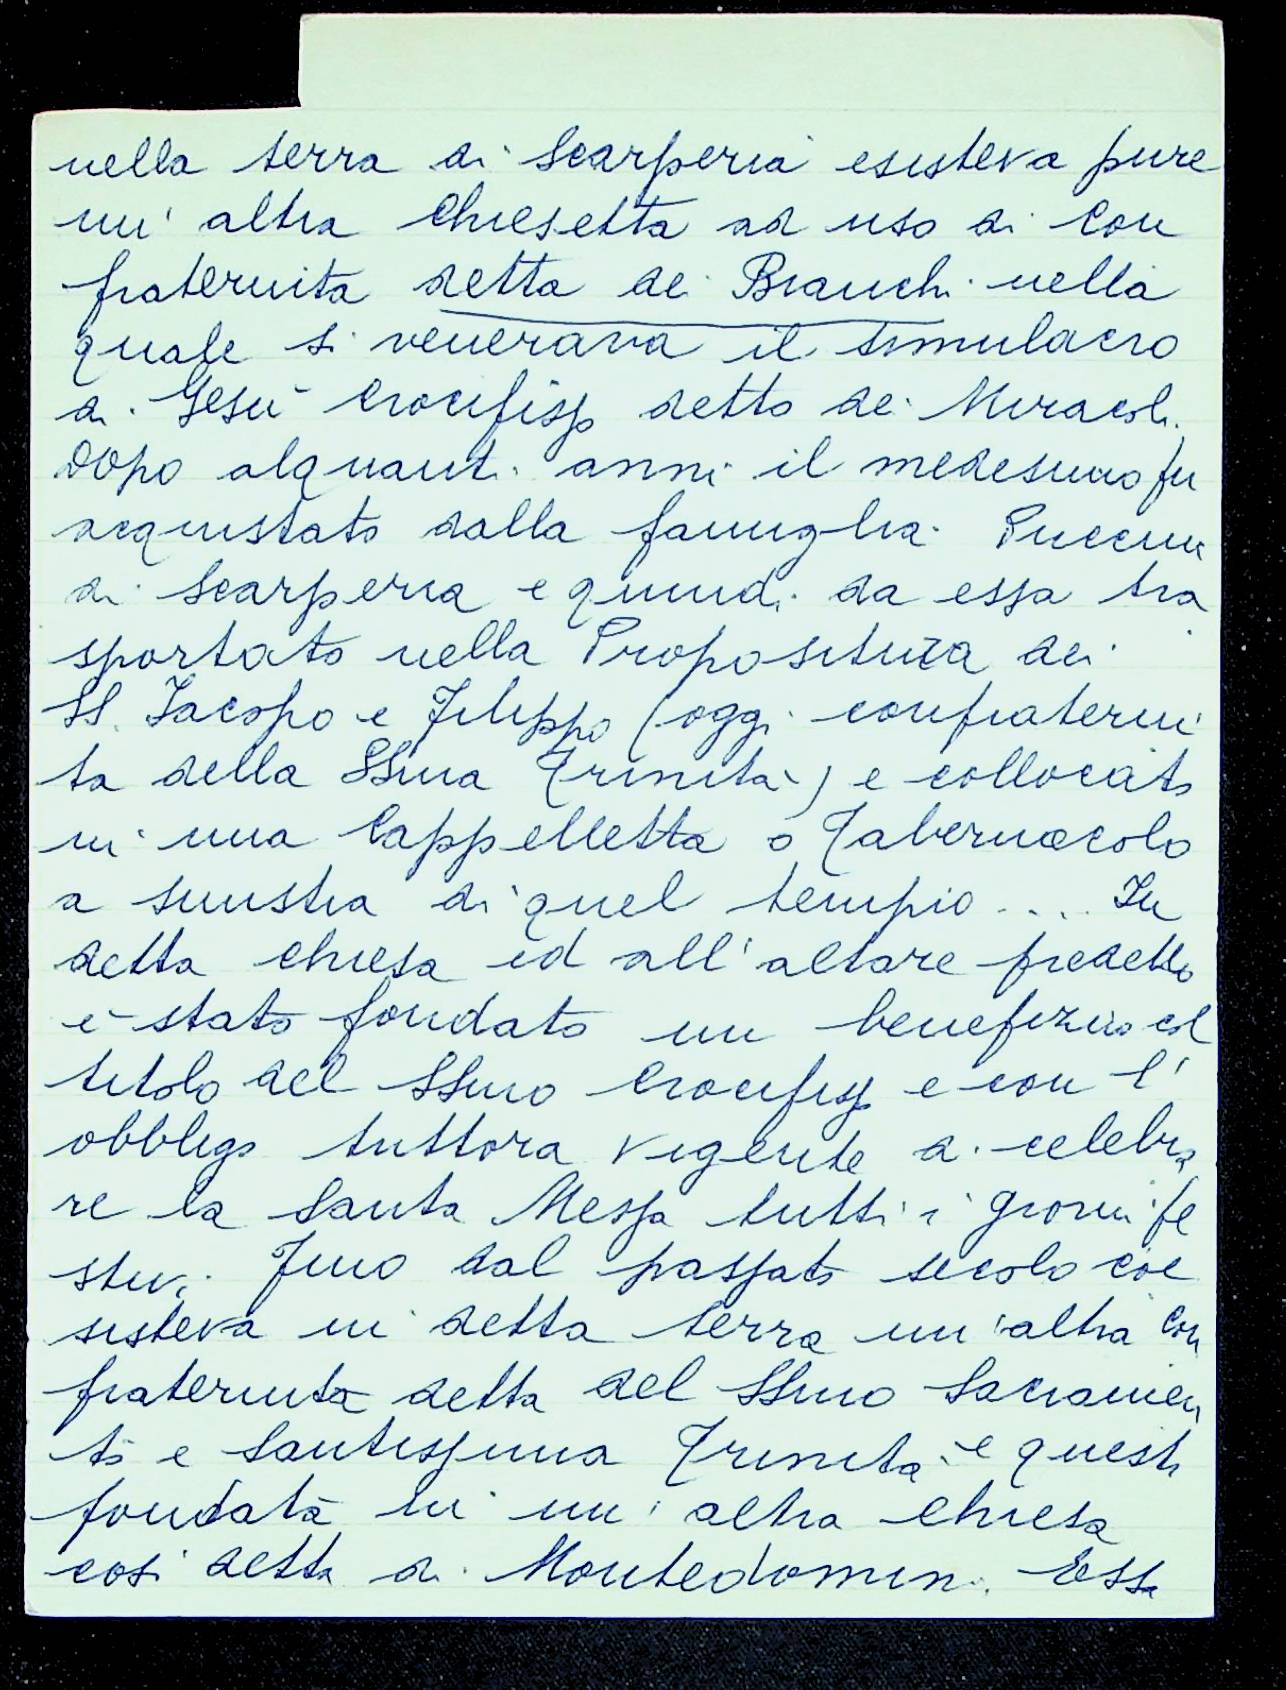 nella terra di Scarperia esisteva pure
un' altra Chiesetta ad uso di Con
fraternita detta dei Bianchi nella
quale si venerava il simulacro
di Gesù Crocifisso detto dei Miracoli.
Dopo alquanti anni il medesimo fu
acquistato dalla famiglia Puccini
di Scarperia e quindi da essa tra
sportato nella Propositura dei
SS. Jacopo e Filippo (oggi confraterni
ta della SSma Trinità) e collocato
in una Cappelletta o Tabernacolo
a sinistra di quel tempio .... In
detta chiesa ed all' altare predetto
è stato fondato un benefizio col
titolo del SSmo Crocifisso e con l'
obbligo tuttora vigente di celebra
re la Santa Messa tutti i giorni fe
stivi. Fino dal passato secolo coe
sisteva in detta terra un' altra Con
fraternita detta del SSmo Sacramen
to e Santissima Trinità e questa
fondata in un' altra Chiesa
così detta di Montedomini. Essa